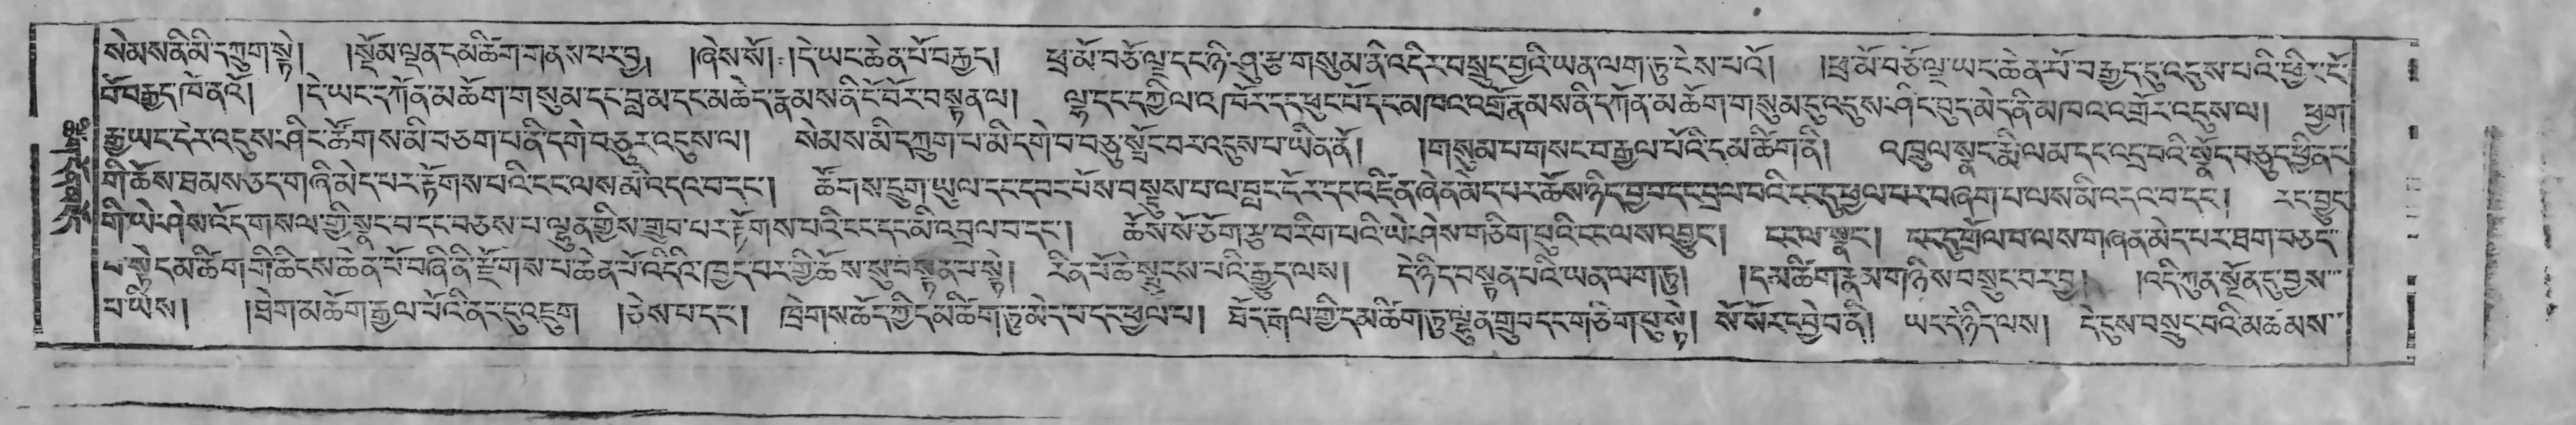 སེམས་ནི་མི་དཀྲུག་སྟེ། །སྡོམ་ལྡན་དམ་ཚིག་གནས་པར་བྱ། །ཞེས་སོ། །དེ་ཡང་ཆེན་པོ་བརྒྱད། ཕྲ་མོ་བཅོ་ལྔ་དང་ཉི་ཤུ་རྩ་གསུམ་ནི་འདིར་བསྲུང་བྱའི་ཡན་ལག་ཏུ་ངེས་པའོ། །ཕྲ་མོ་བཅོ་ལྔ་ཡང་ཆེན་པོ་བརྒྱད་དུ་འདུས་པའི་ཕྱིར་ངོ་
བོ་བརྒྱད་ཁོ་ནའོ། །དེ་ཡང་དཀོན་མཆོག་གསུམ་དང་བླ་མ་དང་མཆེད་རྣམས་ནི་ངོ་བོར་བསྟན་ལ། ལྷ་དང་དཀྱིལ་འཁོར་དང་ཕུང་པོ་དང་མཁའ་འགྲོ་རྣམས་ནི་དཀོན་མཆོག་གསུམ་དུ་འདུས་ཤིང་བུད་མེད་ནི་མཁའ་འགྲོར་འདུས་ལ། ཕྱག་
རྒྱ་ཡང་དེར་འདུས་ཤིང་ཚོགས་མི་བཅག་པ་ནི་དགེ་བཅུར་འདུས་ལ། སེམས་མི་དཀྲུག་པ་མི་དགེ་བ་བཅུ་སྤོང་བར་འདུས་པ་ཡིན་ནོ། །གསུམ་པ་གསང་བ་རྒྱལ་པོའི་དམ་ཚིག་ནི། འཁྲུལ་སྣང་རྨི་ལམ་དང་འདྲ་བའི་སྣོད་བཅུད་ཕྱི་ནང་
གི་ཆོས་ཐམས་ཅད་གཞི་མེད་པར་རྟོགས་པའི་ངང་ལས་མི་འདའ་བ་དང་། ཚོགས་དྲུག་ཡུལ་དང་དབང་པོས་བསྡུས་པ་ལ་བླང་དོར་དང་འཛིན་ཞེན་མེད་པར་ཆོས་ཉིད་བྱ་བ་དང་བྲལ་བའི་ངང་དུ་ཕྱལ་བར་བཞག་པ་ལས་མི་འདའ་བ་དང་། རང་བྱུང་
གི་ཡེ་ཤེས་འོད་གསལ་གྱི་སྣང་བ་དང་བཅས་པ་ལྷུན་གྱིས་གྲུབ་པར་རྟོགས་པའི་ངང་དང་མི་འབྲལ་བ་དང་། ཆོས་སོ་ཅོག་རྩ་བ་རིག་པའི་ཡེ་ཤེས་གཅིག་པུའི་ངང་ལས་བྱུང་། ངང་ལ་སྣང་། ངང་དུ་གྲོལ་བ་ལས་གཞན་མེད་པར་ཐག་བཅད་
པ་སྟེ་དམ་ཚིག་གི་ཆིངས་ཆེན་པོ་བཞི་ནི་རྫོགས་པ་ཆེན་པོ་འདིའི་ཁྱད་པར་གྱི་ཆོས་སུ་བསྟན་པ་སྟེ། རིན་པོ་ཆེ་སྤུངས་པའི་རྒྱུད་ལས། དེ་ཉིད་བསྟན་པའི་ཡན་ལག་ཏུ། །དམ་ཚིག་རྣམ་གཉིས་བསྲུང་བར་བྱ། །འདི་ཀུན་སྔོན་དུ་བྱས་
པ་ཡིས། །ཐེག་མཆོག་རྒྱལ་པོའི་ནང་དུ་འཇུག །ཅེས་པ་དང་། ཁྲེགས་ཆོད་ཀྱི་དམ་ཚིག་ཏུ་མེད་པ་དང་ཕྱལ་བ། ཐོད་རྒལ་གྱི་དམ་ཚིག་ཏུ་ལྷུན་གྲུབ་དང་གཅིག་པུ་སྟེ། སོ་སོར་དབྱེ་བ་ནི། ཡང་དེ་ཉིད་ལས། དེ་དུས་བསྲུང་བའི་མཚམས་